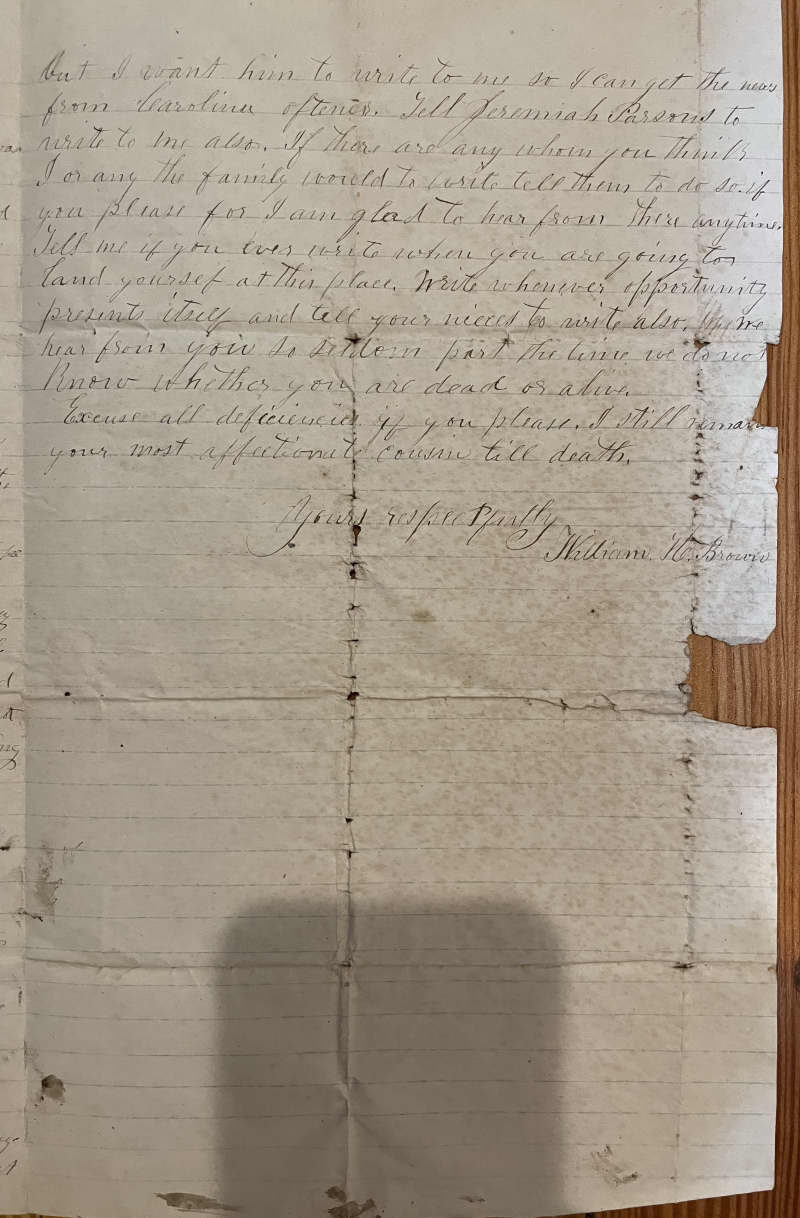 But I want him to write to me so I can get the news
from Carolina oftener. Tell Jeremiah Parsons to
write to me also. If there are any whom you think
I or any the family would to write tell them to do so if
you please for I am glad to hear from there anytime.
Tell me if you ever write when you are going to
land yoursef at this place. Write whenever opportunity
presents itself and tell your nieces to write also. We
hear from you so seldom part the time we do not
Know whether you are dead or alive.
Excuse all deficiencies if you please. I still remain
your most affectionate cousin till death.
Yours respectfully
William. H. Brown